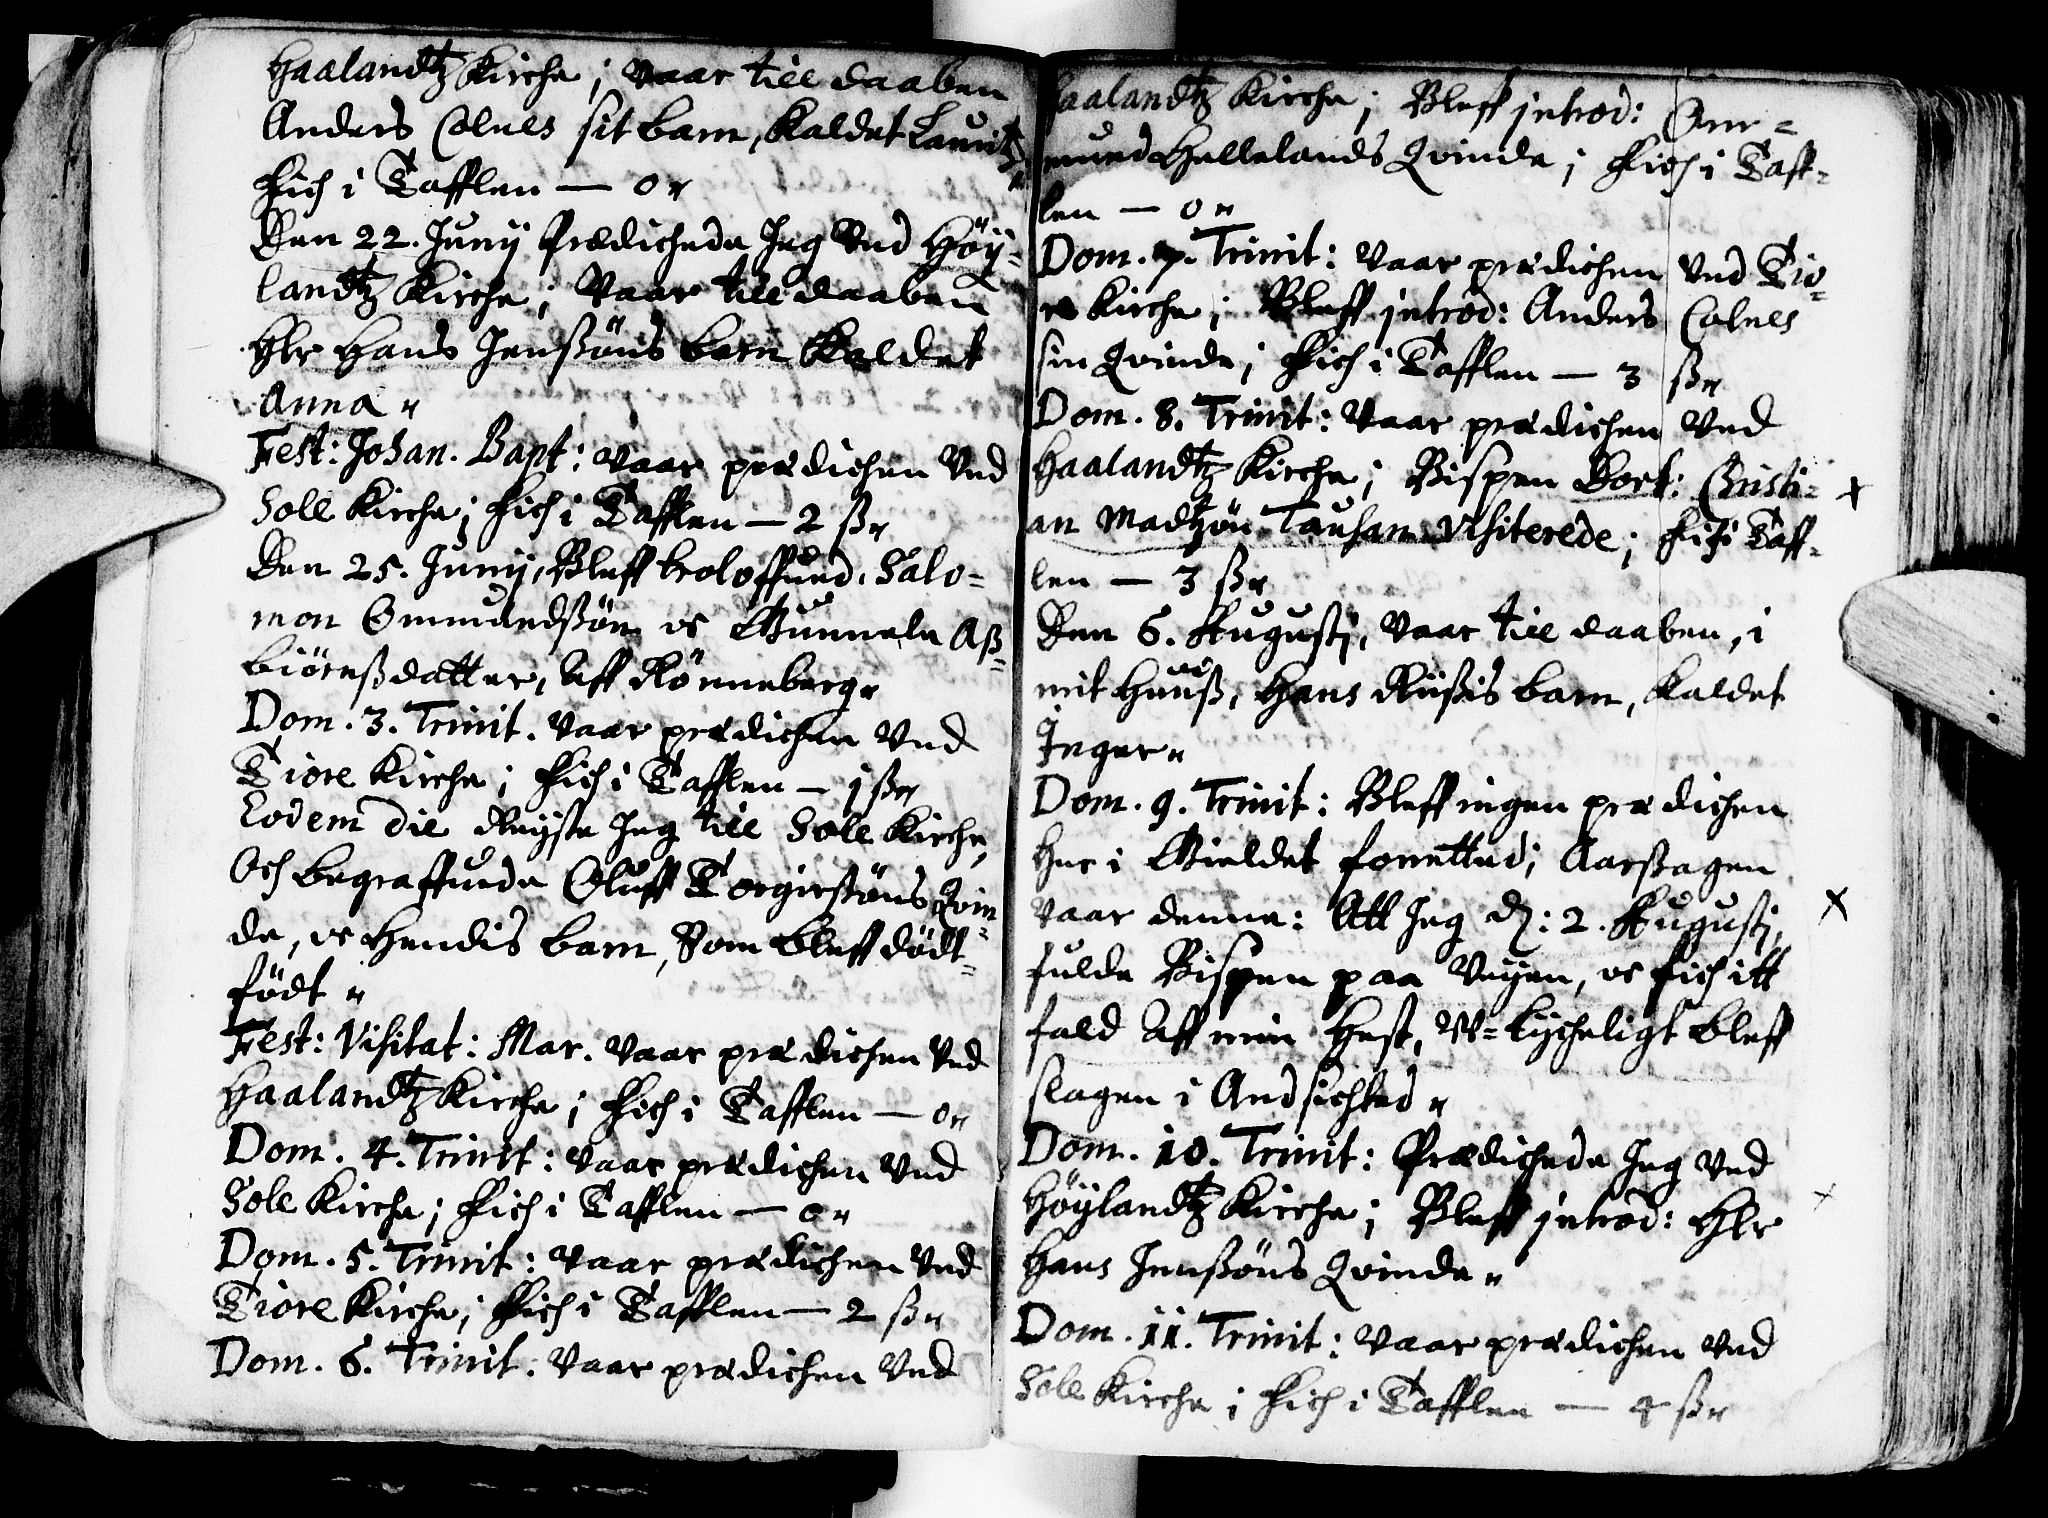 Haalandtz Kirche; Vaar till daaben
Anders Colnes sit barn, Kaldet Lauritz,
Fich i Tafflen — 0"
Den 22. Junij Prædichede Jeg Ved Høÿ-
landtz Kirche; Vaar till daaben
Hlr Hans Jenßøns barn Kaldet
Anna "
Fest: Johan. Bapt: Vaar prædichen Ved
Sole Kirche; Fich i Tafflen — 2 ß"
Den 25. Junij, Bleff troloffued, Salo-
mon Ommundßøn oc Gunnele Aß-
biørnßdatter, Aff Rønneberg"
Dom. 3. Trinit. Vaar prædichen Ved
Tiore Kirche; Fich i Tafflen — j ß"
Eodem die Reÿste Jeg till Sole Kirche,
Och begraffuede Oluff Torgierßøns Qvin-
de, oc Hendis barn, Som bleff dødt-
født "
Fest: Visitat: Mar. Vaar prædichen Ved
Haalandtz Kirche; Fich i Tafflen — 0"
Dom. 4. Trinit: Vaar prædichen Ved
Sole Kirche; Fich i Tafflen — 0"
Dom. 5. Trinit: Vaar prædichen Ved
Tiore Kirche; Fich i Tafflen — 2 ß"
Dom. 6. Trinit. Vaar prædichen Ved
Haalandtz Kirche; Bleff jntrod: Om-
mund Hellelands Qvinde; Fich i Taff-
len — 0"
Dom. 7. Trinit: Vaar prædichen Ved Tio-
re Kirche; Bleff jntrod: Anders Colnes
sin Qvinde; Fich i Tafflen — 3 ß"
Dom. 8. Trinit: Vaar prædichen Ved
Haalandtz Kirche; Bispen Doct: Christi- x
an Madtzøn Tausan Visiterede; Fich i Taff-
len — 3 ß"
Den 6. Augustj, Vaar till daaben, i
mit Huuß, Hans Riißis barn, Kaldet
Inger"
Dom. 9. Trinit: Bleff ingen prædichen
Her i Gieldet forretted; Aarßagen
Vaar denne: Att Jeg d: 2. Augustj, x
fulde Bispen paa Veÿen, oc fich itt
fald Aff min Hest, W-lycheligt bleff
slagen i Andsichted"
Dom. 10. Trinit: Prædichede Jeg Ved
Høÿlandtz Kirche; Bleff jntrod: Hlr x
Hans Jenßøns Qvinde"
Dom. 11. Trinit: Vaar prædichen Ved
Sole Kirche; Fich i Tafflen — 4 ß"